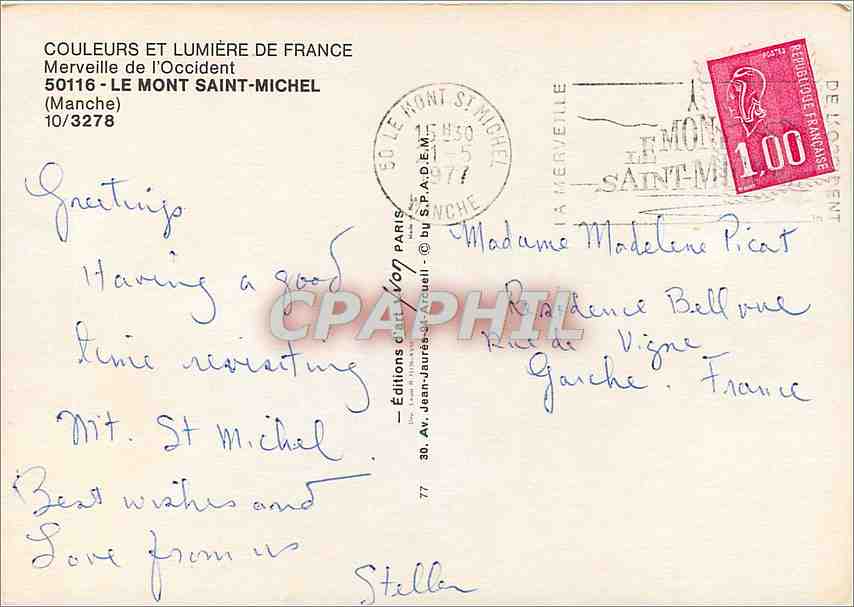 COULEURS ET LUMIÈRE DE FRANCE
Merveille de l'Occident
50116 - LE MONT SAINT-MICHEL
(Manche)
10/3278
Greetings
Having a good
time revisiting
Mt. St Michel.
Best wishes and
Love from us
Stella
50 LE MONT ST MICHEL
15H30
1-5
1977
MANCHE
LA MERVEILLE
DE L'OCCIDENT
LE MONT
SAINT-MI
POSTES
RÉPUBLIQUE FRANÇAISE
1,00
Madame Madelene Picat
Residence Bellvue
Rue de Vigne
Garche. France
— Éditions d'art Yvon PARIS —
30, Av. Jean-Jaurès-94-Arcueil - © by S.P.A.D.E.M.
77
CPAPHIL